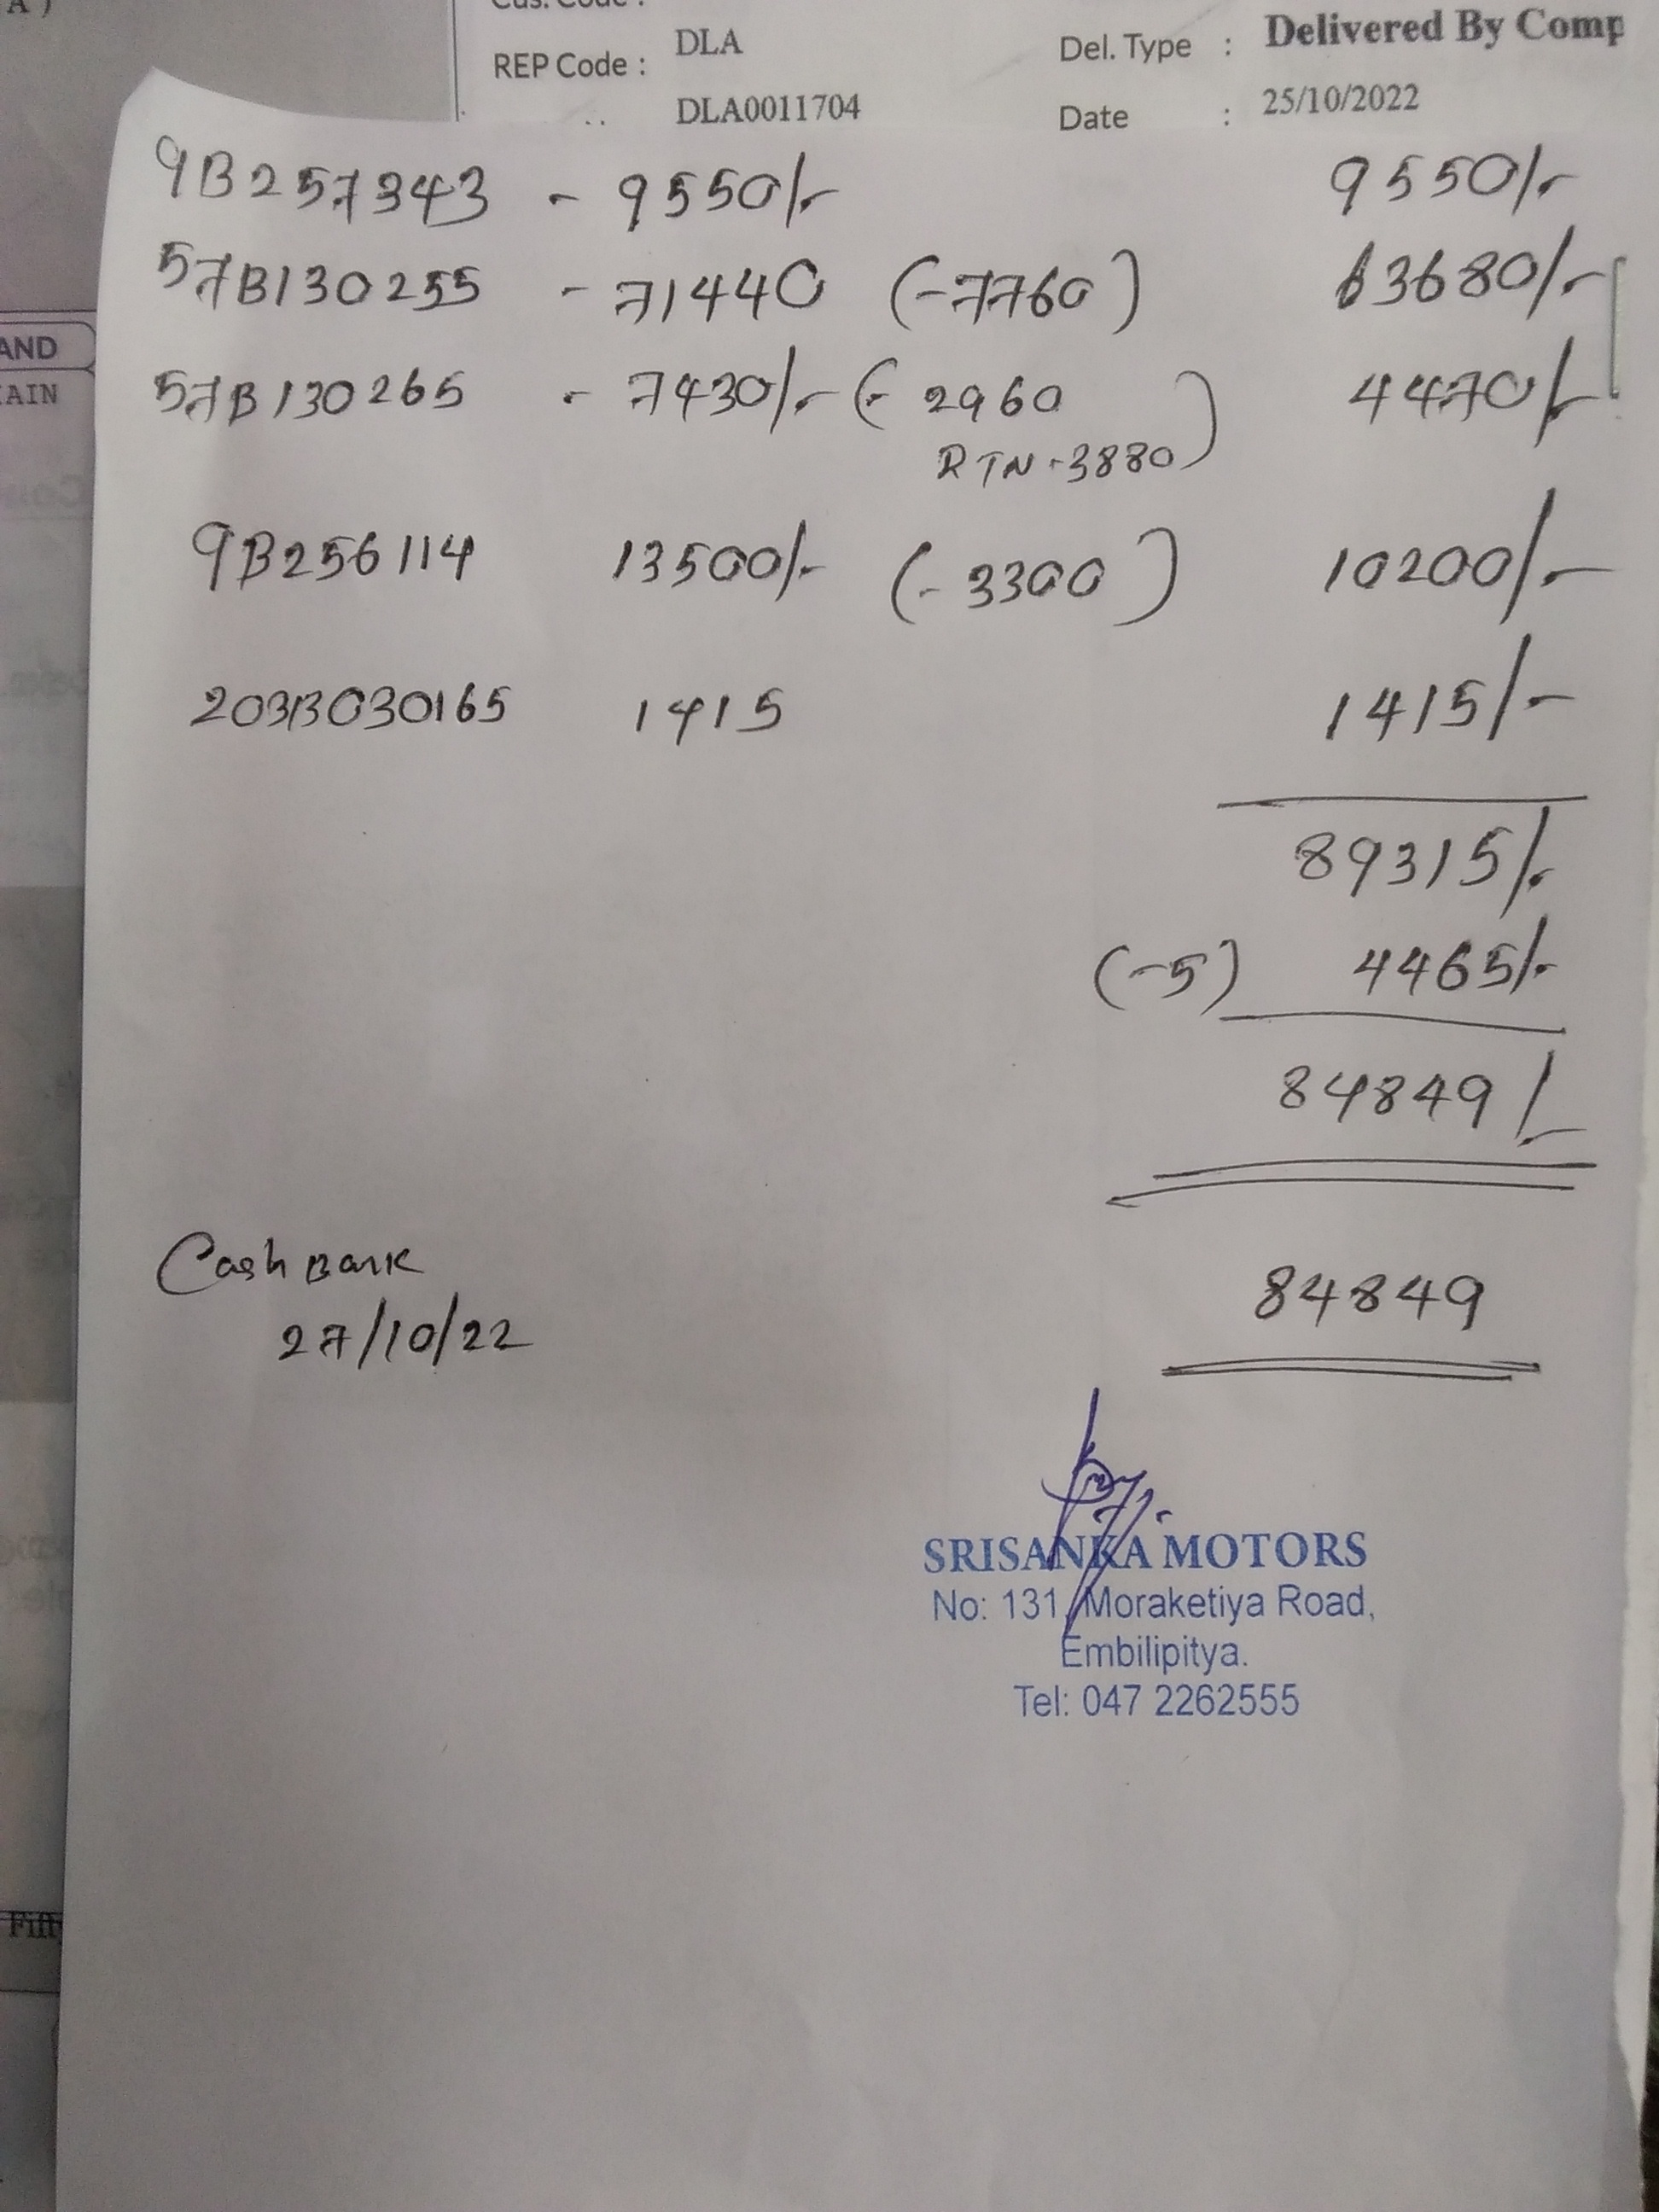 A )
Cus. Code :
REP Code : DLA
Del. Type : Delivered By Comp
DLA0011704
Date : 25/10/2022
9B257343 - 9550/- 9550/-
57B130255 - 71440 (-7760) 63680/-
AND
57B130265 - 7430/- (- 2960 4470/-
AIN
RTN -3880)
9B256114 13500/- (- 3300) 10200/-
203B030165 1415 1415/-
89315/-
(-5) 4465/-
84849/-
Cash Bank
84849
27/10/22
SRISANKA MOTORS
No: 131, Moraketiya Road,
Embilipitya.
Tel: 047 2262555
Fift